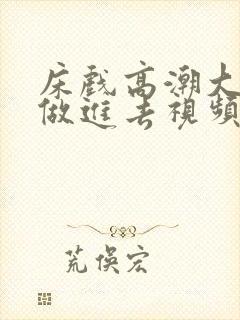 床戲高潮大
做進去視頻
荒俁宏